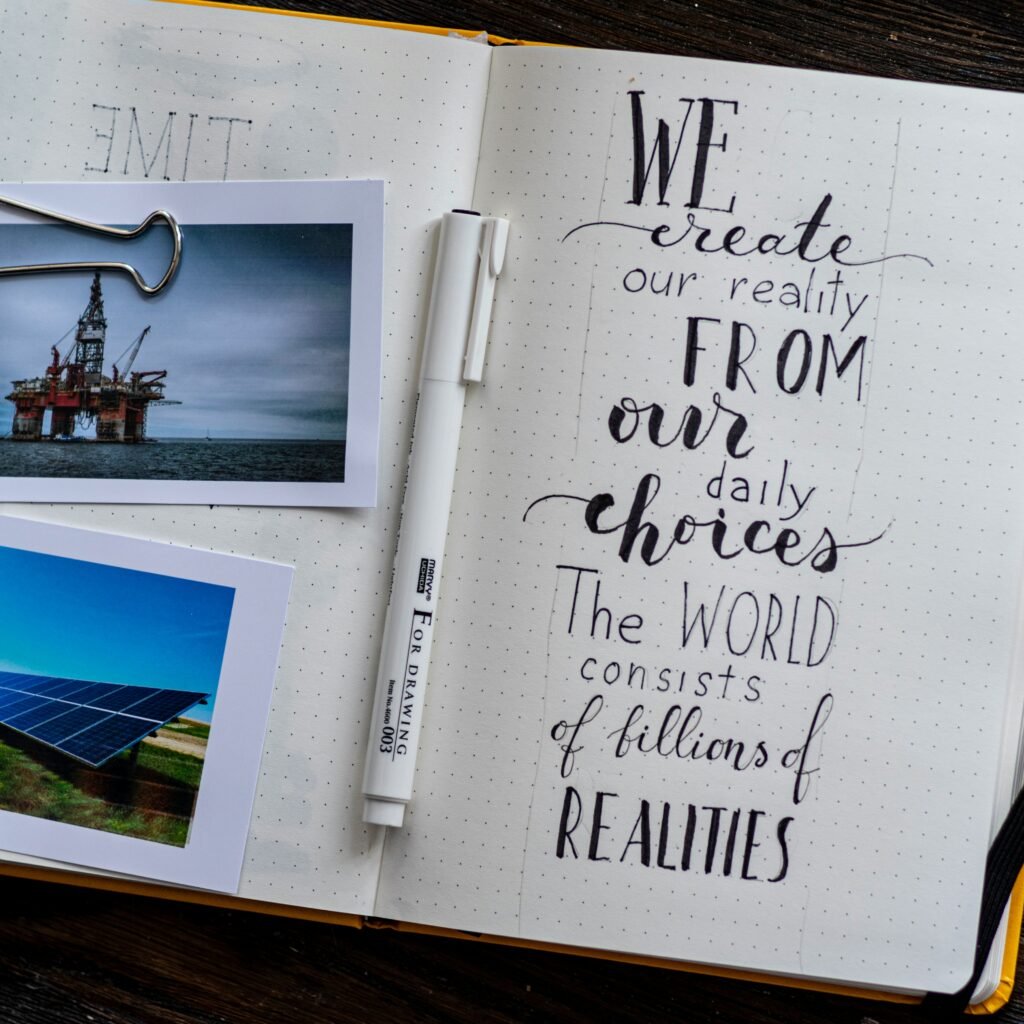 TIME
WE
create
our reality
FROM
our
daily
choices
The WORLD
consists
of billions of
REALITIES
MARVY®
UCHIDA
FOR DRAWING
Item No.4600 003